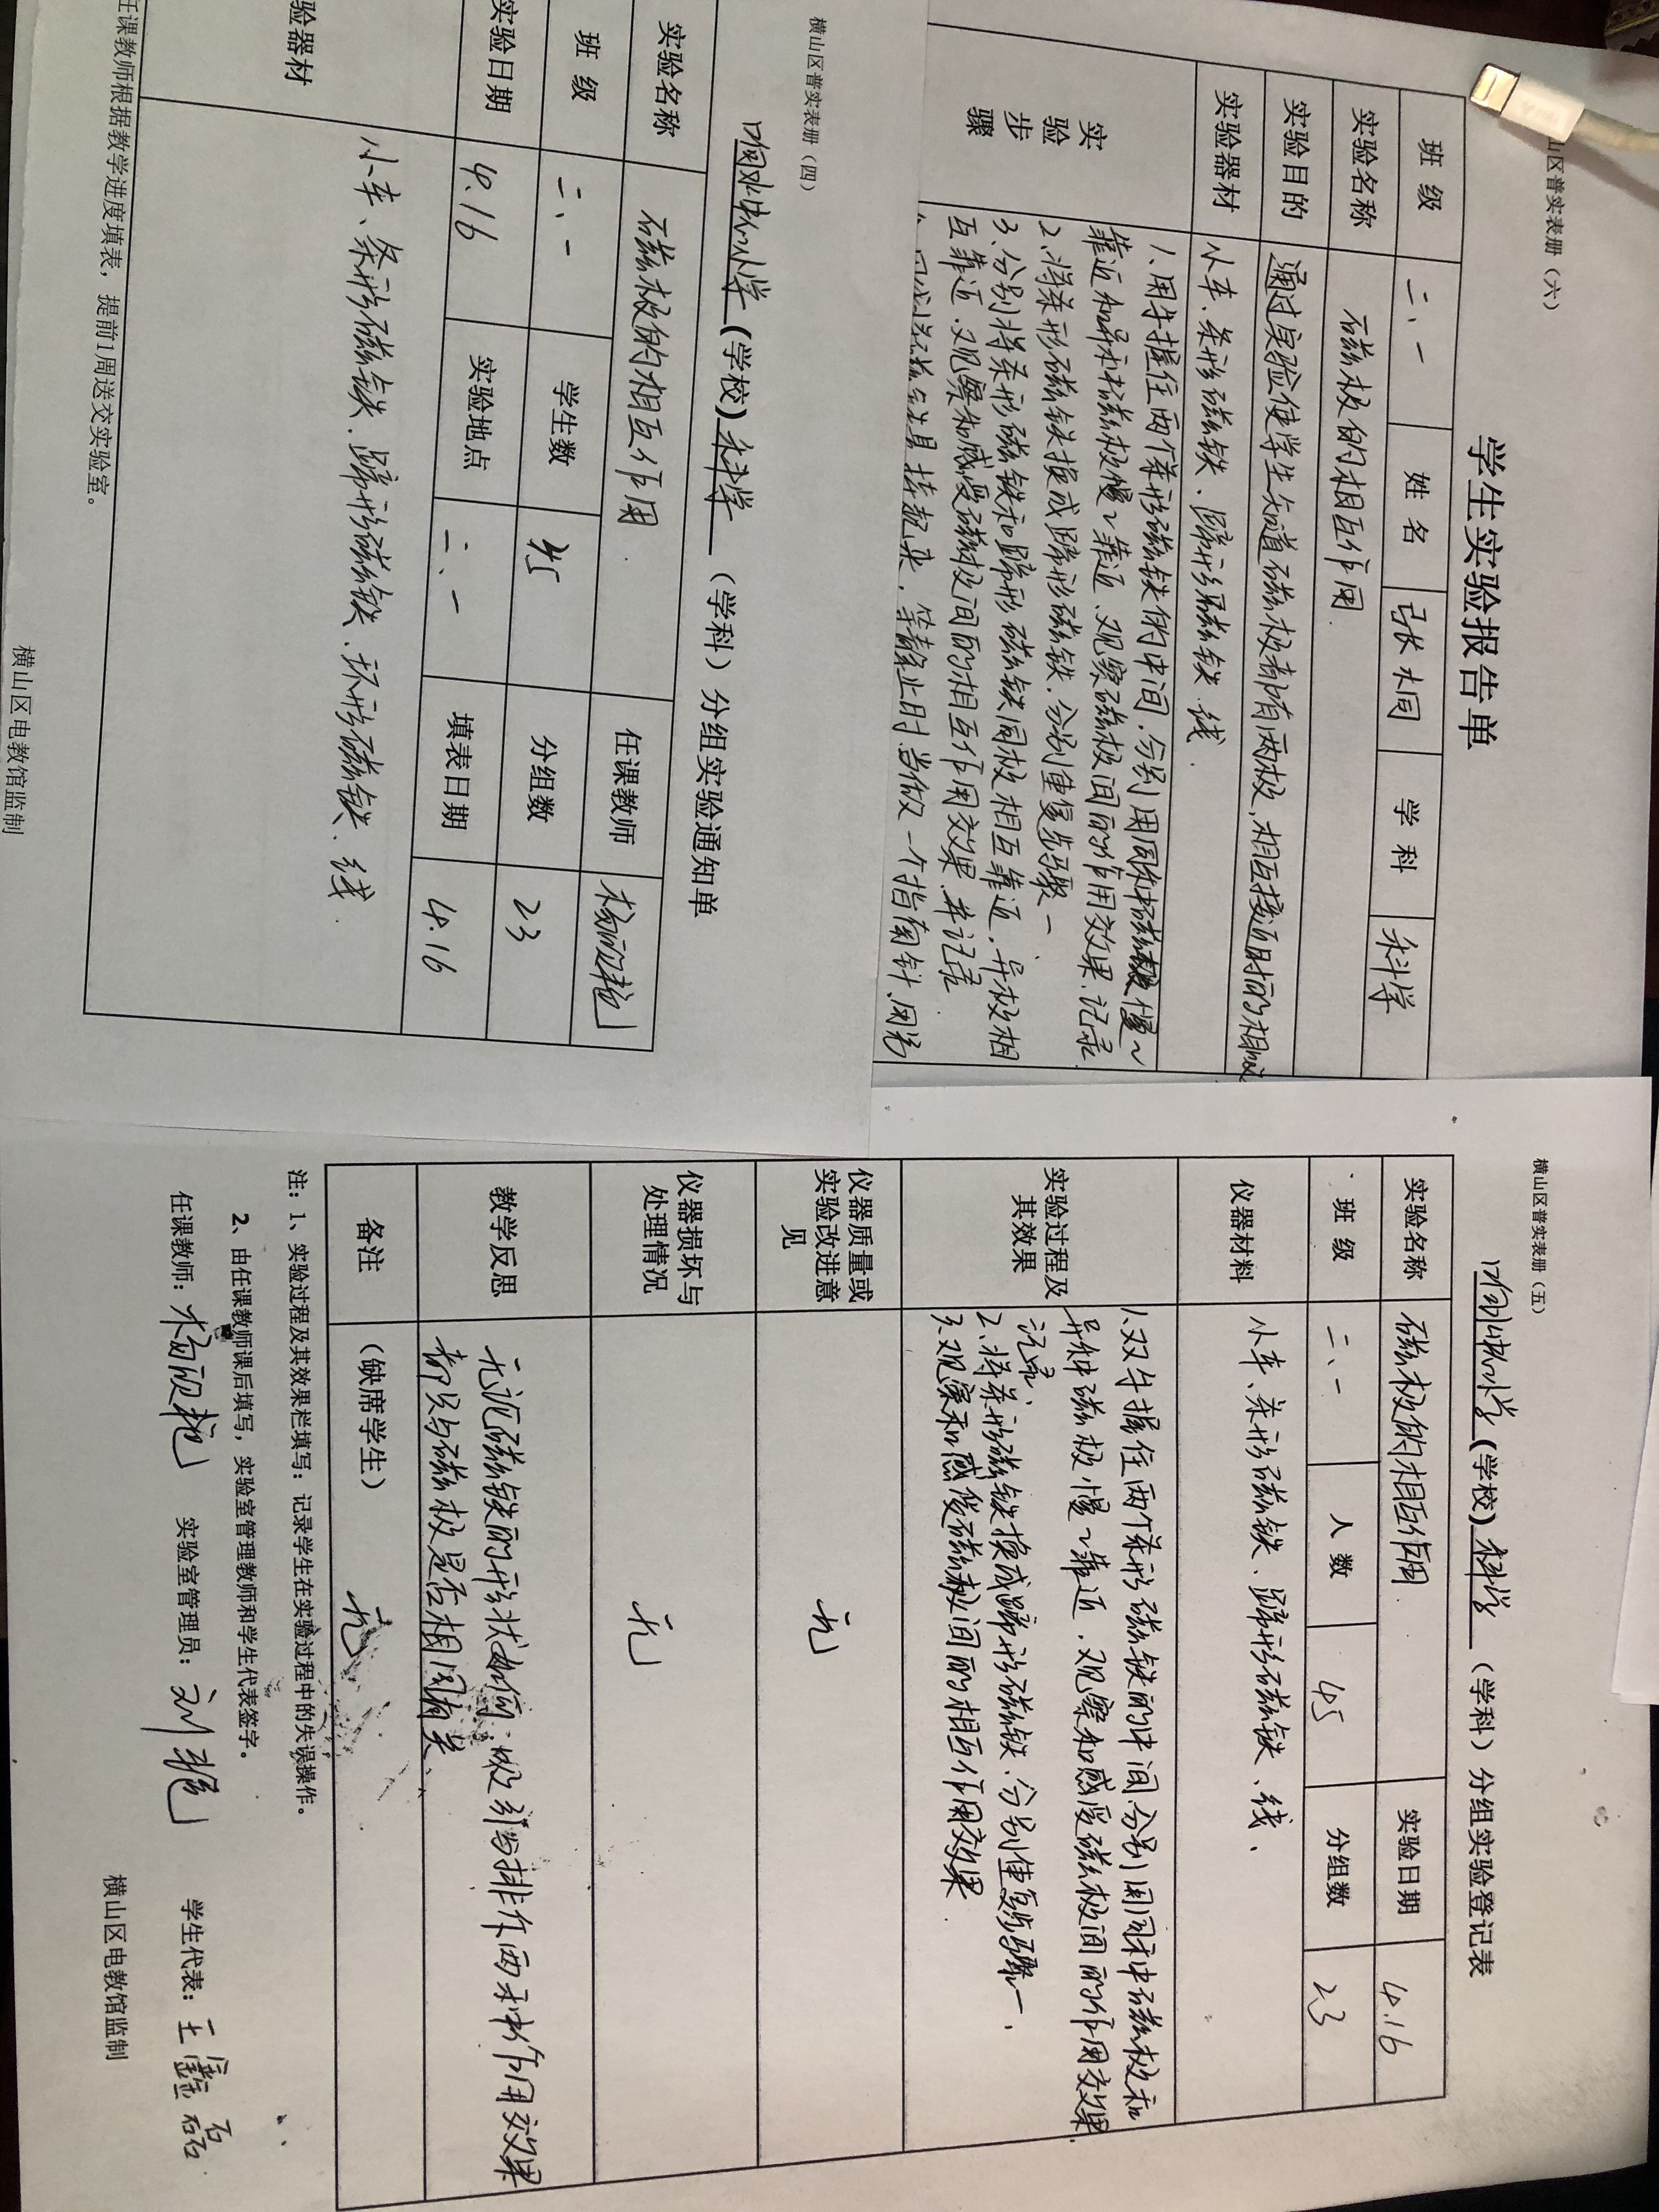 横山区普实表册（四）
(学校) 科学 （学科）分组实验通知单
实验名称 磁极的相互作用 任课教师
班 级 二、一 学生数 45 分组数 23
实验日期 4.16 实验地点 二、一 填表日期 4.16
验器材 小车、条形磁铁、蹄形磁铁、环形磁铁、线.
任课教师根据教学进度填表，提前1周送交实验室。
横山区电教馆监制
山区普实表册（六）
学生实验报告单
班 级 二、一 姓 名 学 科 科学
实验名称 磁极的相互作用.
实验目的 通过实验使学生知道磁极都有两极,相互接近时
实验器材 小车、条形磁铁、蹄形磁铁、线
实验步骤
1、用手握住两个条形磁铁的中间,分别用同种磁极慢~
靠近和异种磁极慢~靠近、观察磁极间的作用效果.记录
2、将条形磁铁换成蹄形磁铁.分别重复步骤一
3、分别将条形磁铁和蹄形磁铁同极相互靠近,异极相
互靠近.观察和感受磁极间的相互作用效果.并记录
等静止时.当做一个指南针.
横山区普实表册（五）
(学校) 科学 （学科）分组实验登记表
实验名称 磁极的相互作用 实验日期 4.16
班 级 二、一 人 数 45 分组数 23
仪器材料 小车、条形磁铁、蹄形磁铁、线、
实验过程及其效果
1、双手握住两个条形磁铁的中间,分别用同种磁极和
异种磁极慢~靠近.观察和感受磁极间的作用效果.
记录
2、将条形磁铁换成蹄形磁铁.分别重复步骤一,
3、观察和感受磁极间的相互作用效果
仪器质量或实验改进意见 无
仪器损坏与处理情况 无
教学反思 无论磁铁的形状如何.吸引与排斥两种作用效果
都只与磁极是否相同有关.
备注 （缺席学生） 无
注：1、实验过程及其效果栏填写：记录学生在实验过程中的失误操作。
2、由任课教师课后填写，实验室管理教师和学生代表签字。
任课教师： 实验室管理员：刘艳 学生代表：王鑫磊
横山区电教馆监制